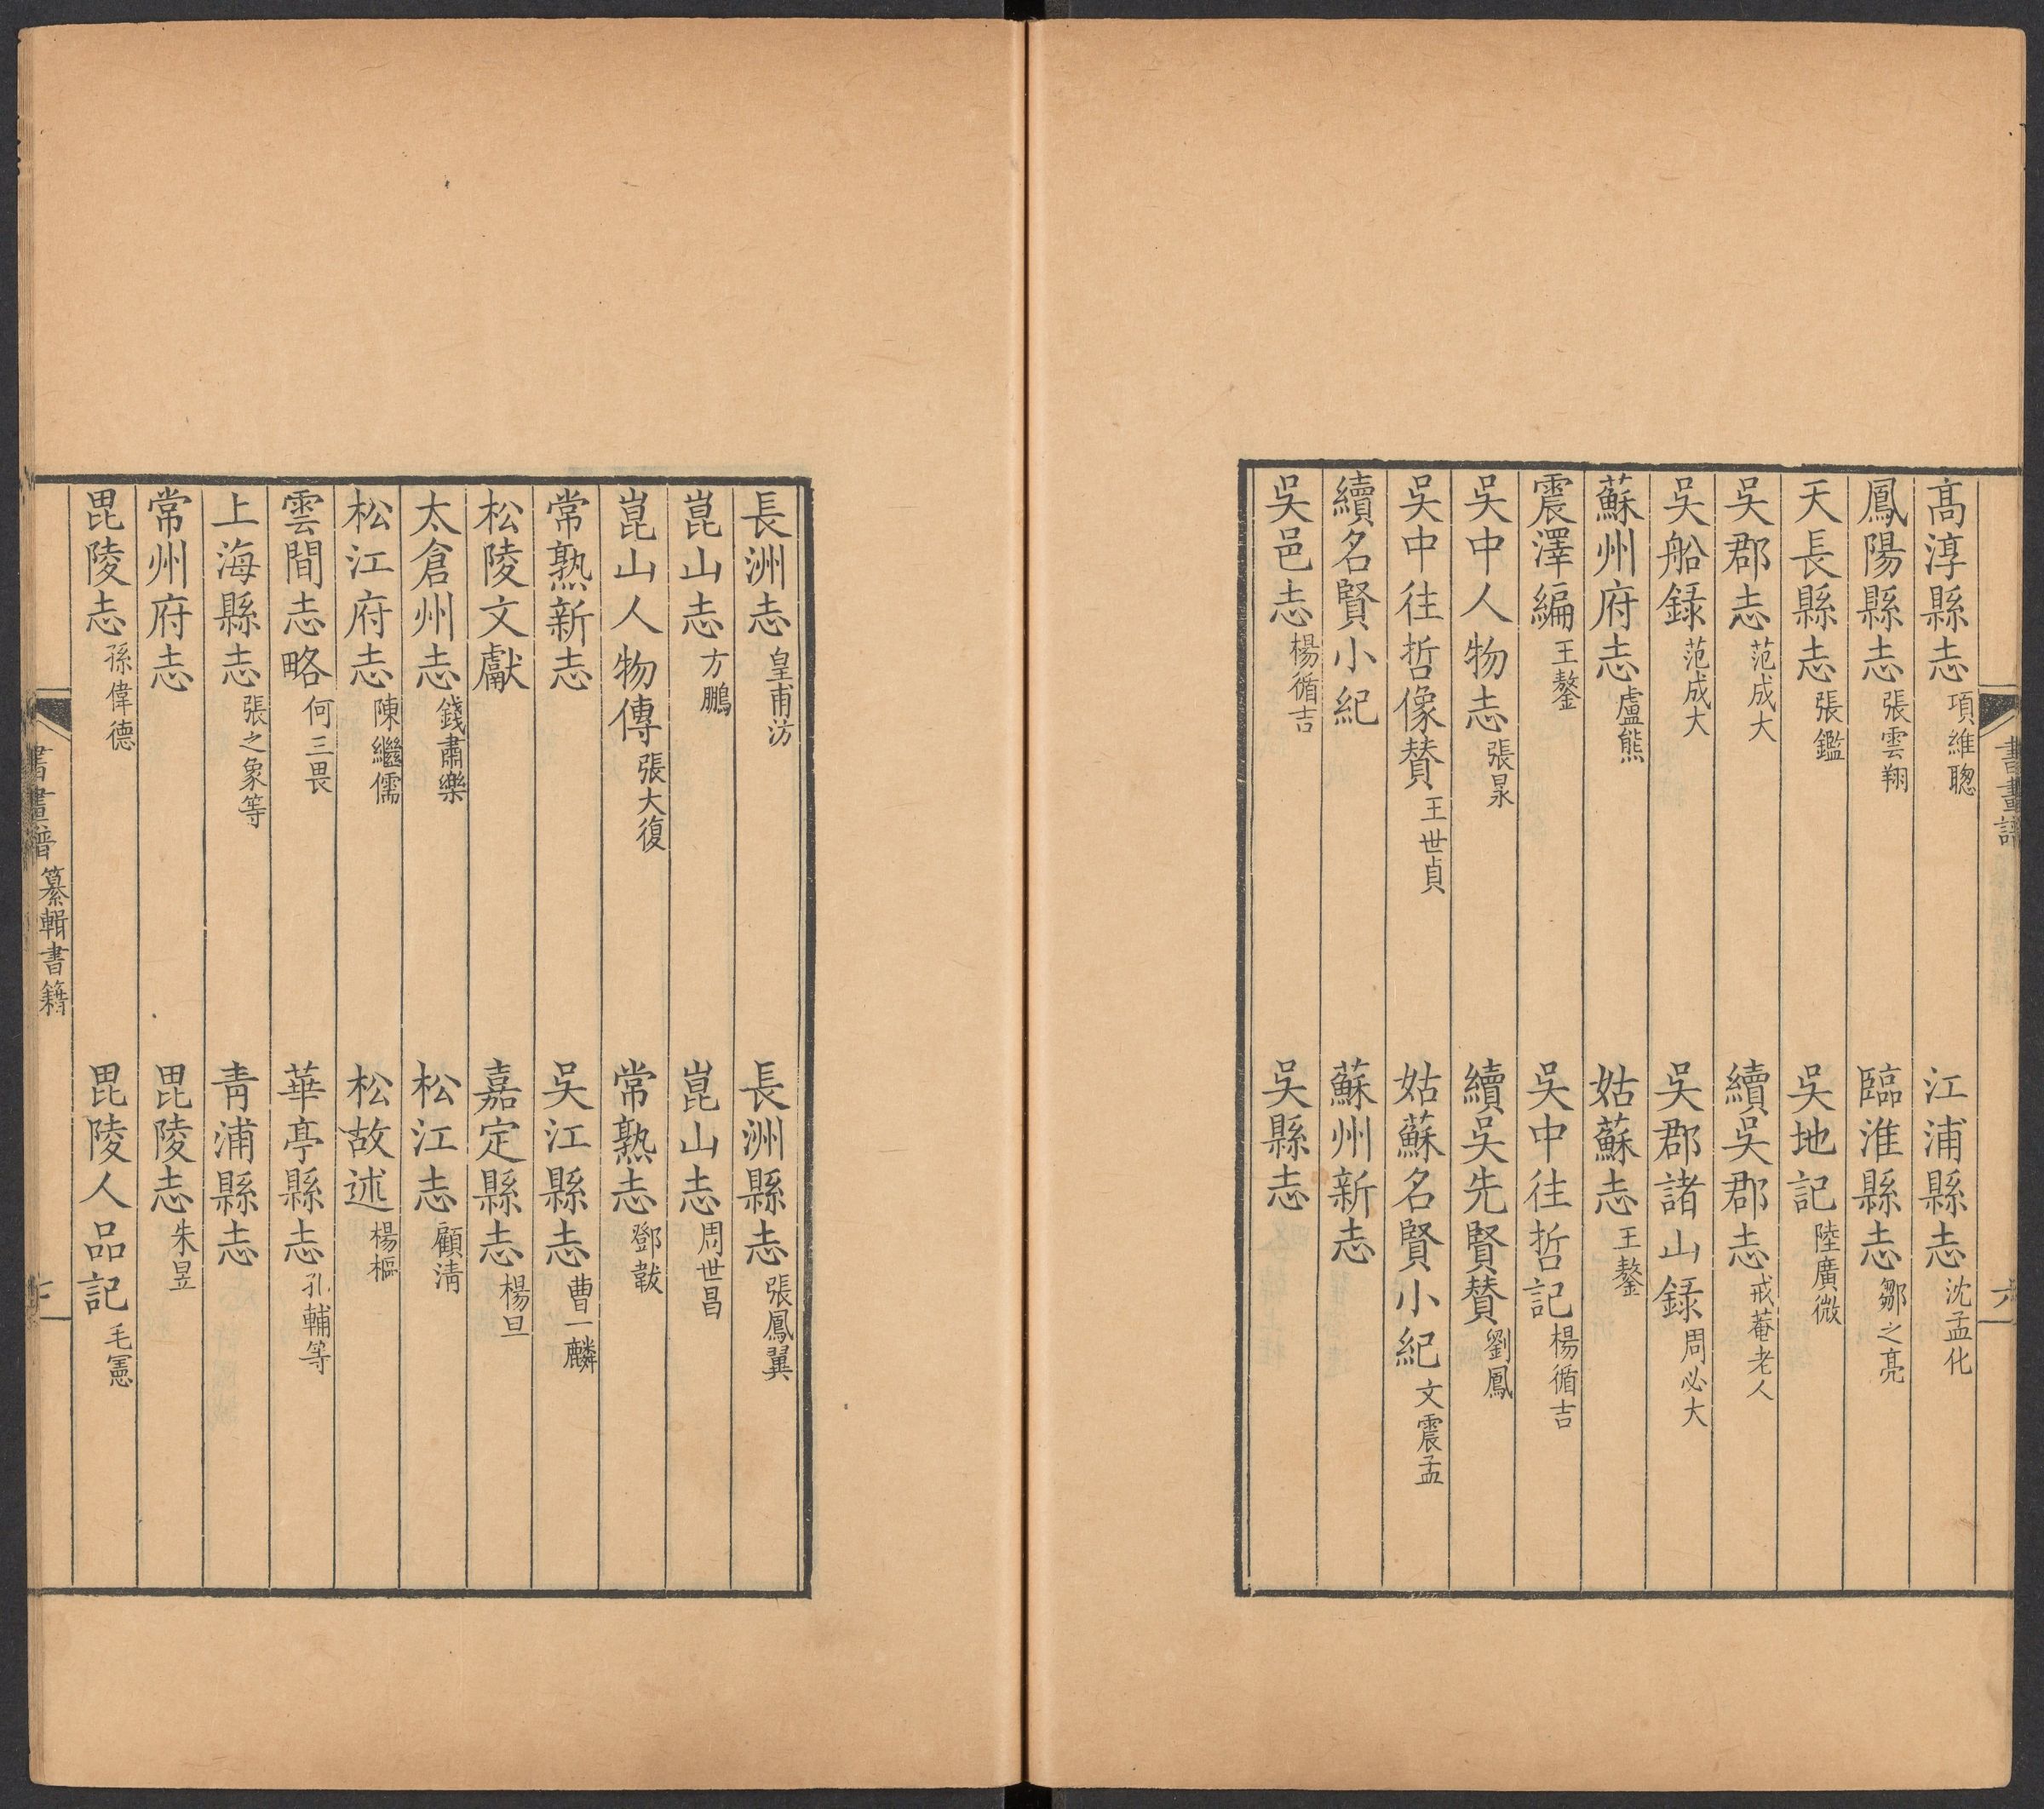 書畫譜 六
高淳縣志 項維聰 江浦縣志 沈孟化
鳳陽縣志 張雲翔 臨淮縣志 鄒之亮
天長縣志 張鑑 吳地記 陸廣微
吳郡志 范成大 續吳郡志 戒菴老人
吳船録 范成大 吳郡諸山録 周必大
蘇州府志 盧熊 姑蘇志 王鏊
震澤編 王鏊 吳中往哲記 楊循吉
吳中人物志 張㫤 續吳先賢贊 劉鳳
吳中往哲像贊 王世貞 姑蘇名賢小紀 文震孟
續名賢小紀 蘇州新志
吳邑志 楊循吉 吳縣志
長洲志 皇甫汸 長洲縣志 張鳳翼
崑山志 方鵬 崑山志 周世昌
崑山人物傳 張大復 常熟志 鄧韍
常熟新志 吳江縣志 曹一麟
松陵文獻 嘉定縣志 楊旦
太倉州志 錢肅樂 松江志 顧清
松江府志 陳繼儒 松故述 楊樞
雲間志略 何三畏 華亭縣志 孔輔等
上海縣志 張之象等 青浦縣志
常州府志 毘陵志 朱昱
毘陵志 孫偉德 毘陵人品記 毛憲
書畫譜 纂輯書籍